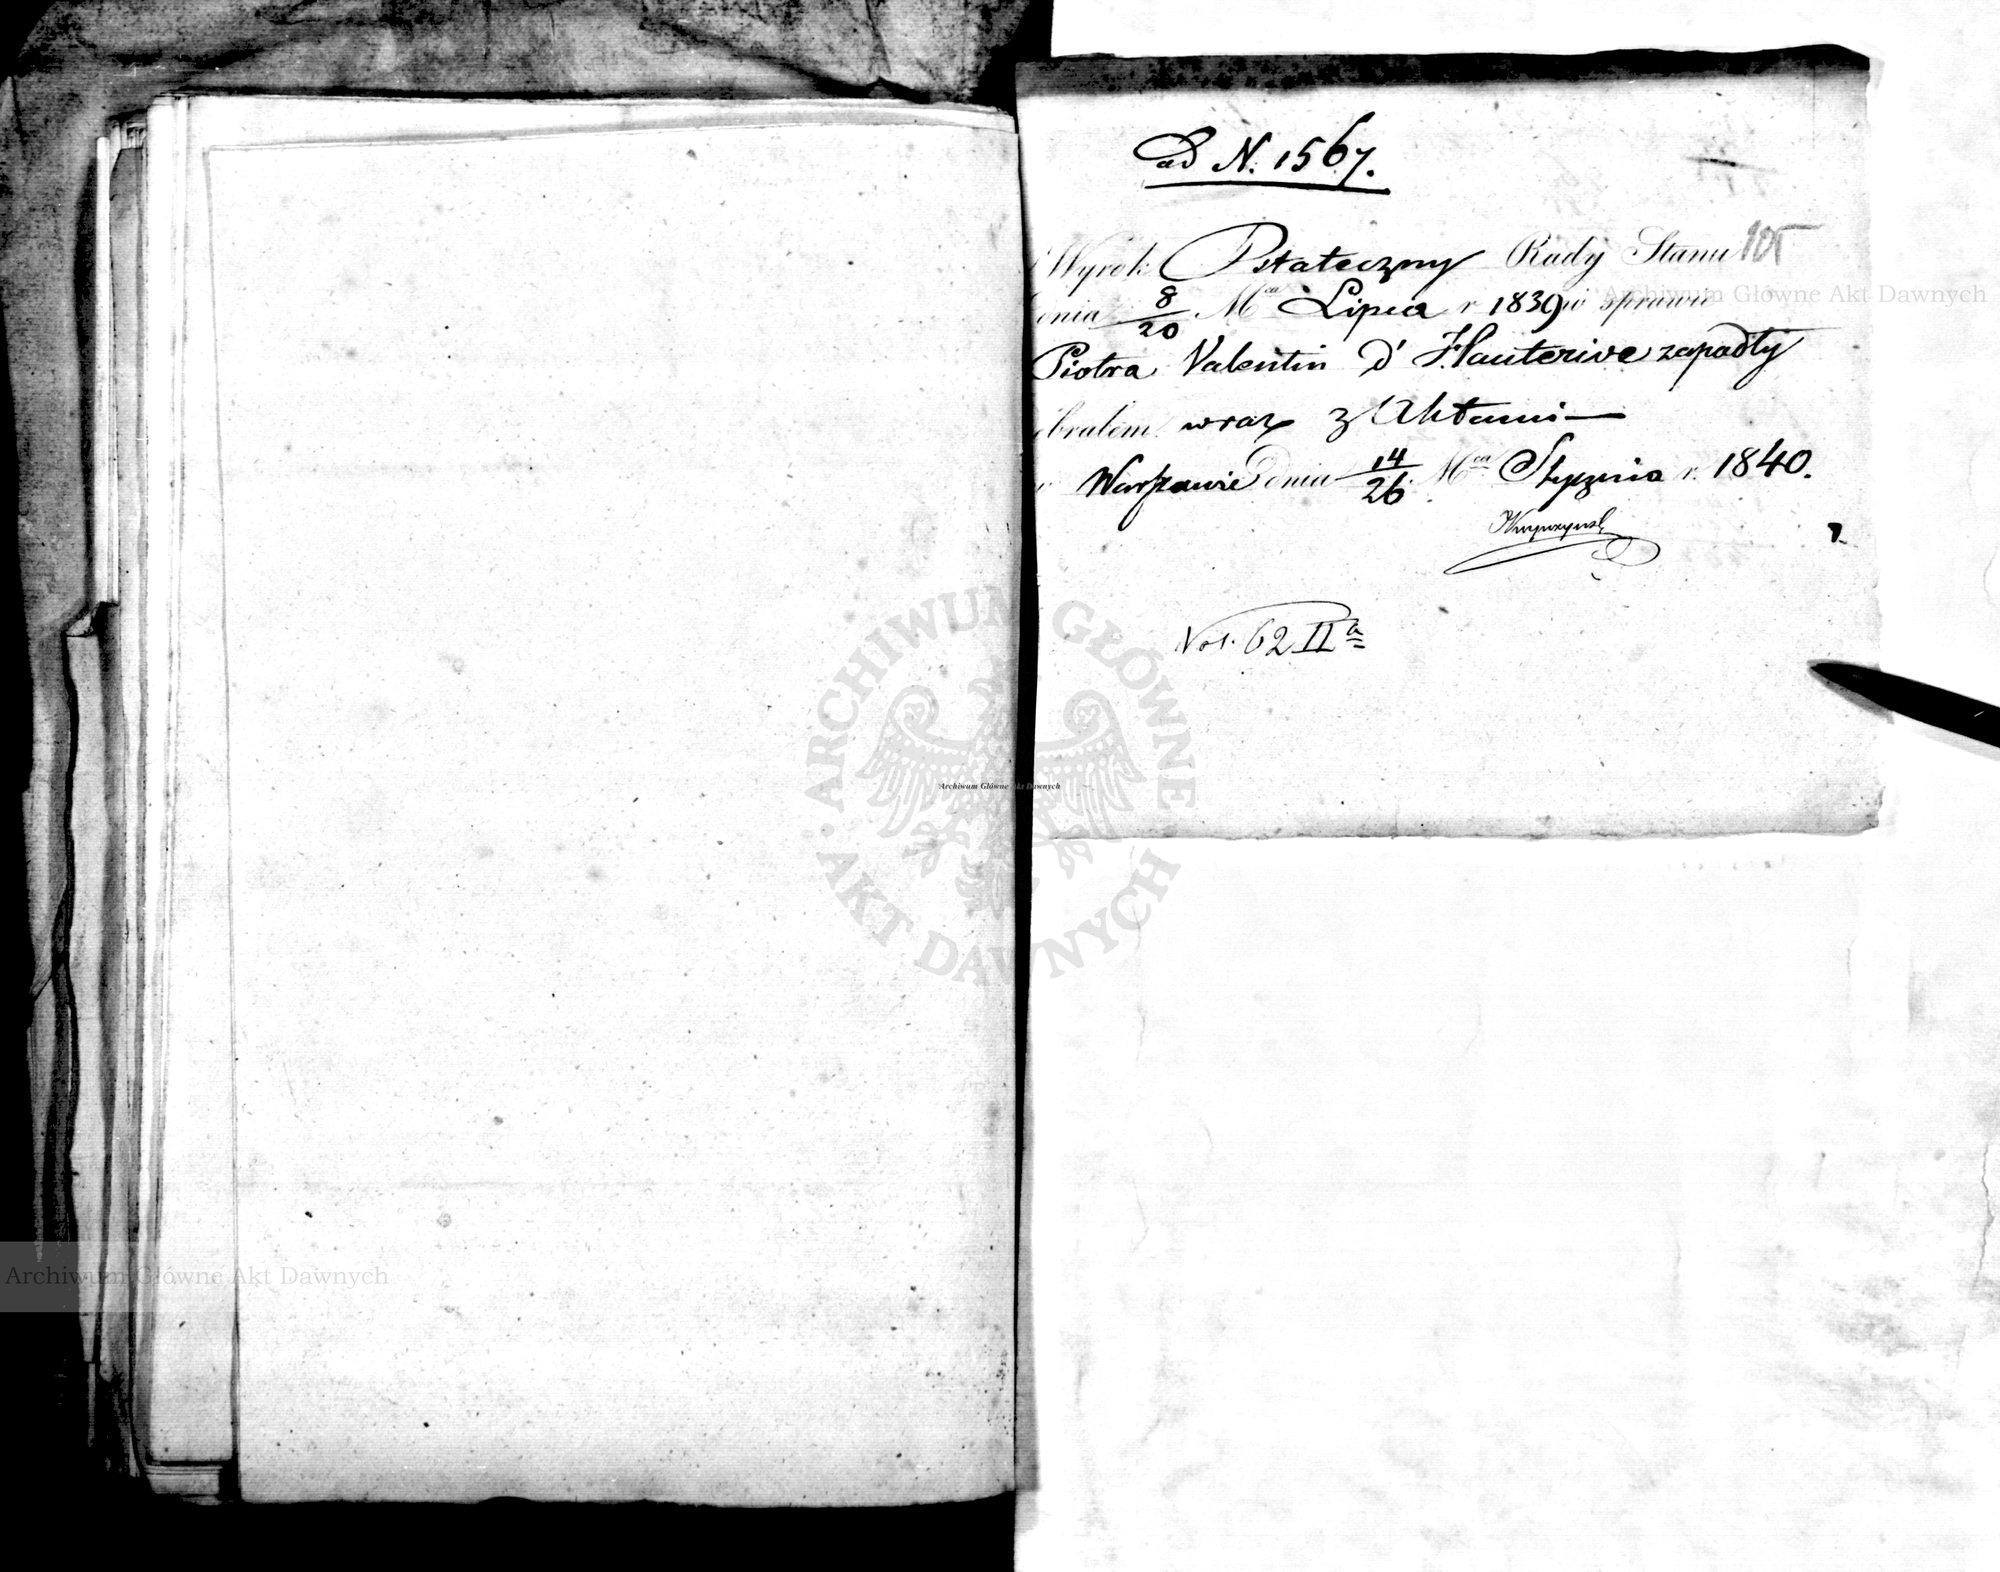 ad N. 1567.
105
Wyrok Ostateczny Rady Stanu
dnia 8/20 Mca Lipca r 1839 w sprawie
Piotra Valentin d'Hauterive zapadły
ebrałem wraz z Aktami
Warszawie dnia 14/26 Mca Stycznia r. 1840.
Vol. 62 II a
Archiwum Główne Akt Dawnych
ARCHIWUM GŁÓWNE AKT DAWNYCH
Archiwum Główne Akt Dawnych
Archiwum Główne Akt Dawnych